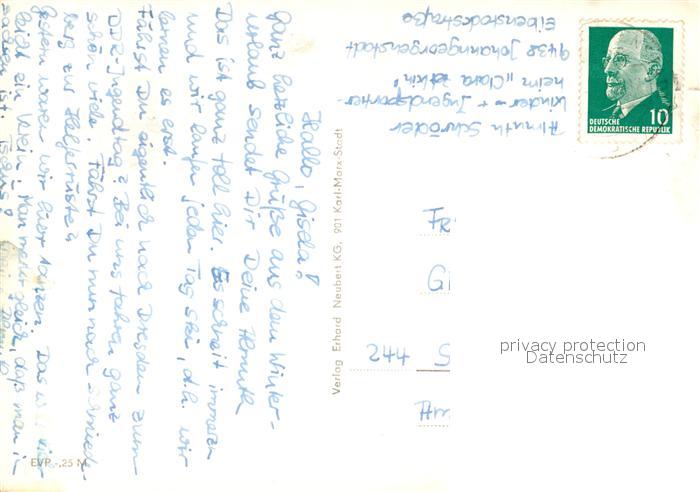 Hallo, Gisela!
Ganz herzliche Grüße aus dem Winter-
urlaub sendet Dir Deine Almuth
Das ist ganz toll hier. Es schneit immerzu
und wir laufen jeden Tag Ski, d.h. wir
lernen es erst.
Fährst Du eigentlich nach Dresden zum
DDR-Jugendtag? Bei uns fahren ganz
schön viele. Fährst Du nun nach Schmiede-
berg zur Helferrüste?
Gestern waren wir hier tanzen. Das war
leicht ein Man merkt gleich, daß man in
Sachsen ist.
EVP -,25 M
Verlag Erhard Neubert KG, 901 Karl-Marx-Stadt
Almuth Schröder
Kinder- + Jugendsporter-
heim "Clara Zetkin"
9438 Johanngeorgenstadt
Eibenstockstraße
10
DEUTSCHE
DEMOKRATISCHE REPUBLIK
Fr
Gi
244 S
Am
privacy protection
Datenschutz